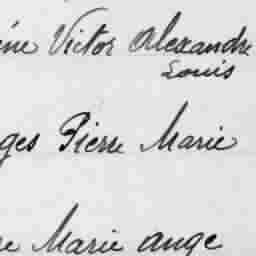 Victor Alexandre
Louis
Pierre Marie
Marie ange